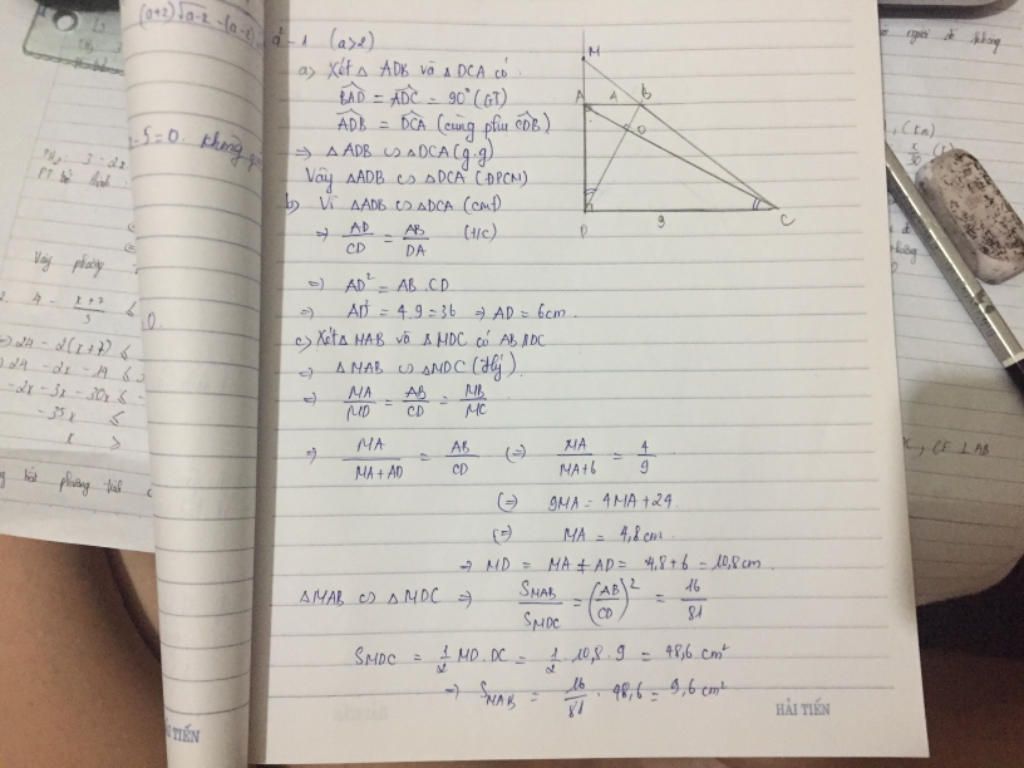 (a+2)√a-2 - (a-2)
a² - 1 (a>2)
a) Xét △ ADB và △ DCA có:
BAD = ADC = 90° (GT)
ADB = DCA (cùng phụ CDB)
=> △ ADB ∽ △DCA (g.g)
Vậy △ADB ∽ △DCA (ĐPCM)
b) Vì △ADB ∽ △DCA (cmt)
=> AD/CD = AB/DA (t/c)
=> AD² = AB.CD
=> AD² = 4.9 = 36 => AD = 6cm.
c) Xét △ MAB và △ MDC có AB//DC
=> △ MAB ∽ △MDC (đlý)
=> MA/MD = AB/CD = MB/MC
=> MA/MA+AD = AB/CD (=) MA/MA+6 = 4/9
(=) 9MA = 4MA + 24.
(=) MA = 4,8cm
=> MD = MA + AD = 4,8 + 6 = 10,8cm.
△MAB ∽ △MDC => SMAB/SMDC = (AB/CD)² = 16/81
SMDC = 1/2 MD.DC = 1/2 . 10,8 . 9 = 48,6 cm²
=> SMAB = 16/81 . 48,6 = 9,6 cm²
HẢI TIẾN
M
A 4 B
O
D 9 C
- 5 = 0.
3 - 2x
PT
Vậy phương
4 - x+7/3 ≤
24 - 2(x+7) ≤
24 - 2x - 14 ≤
-2x - 3x - 30x ≤
-35x ≤
x >
phương trình
TIẾN
người đi không
x/30
, CF ⊥ AB